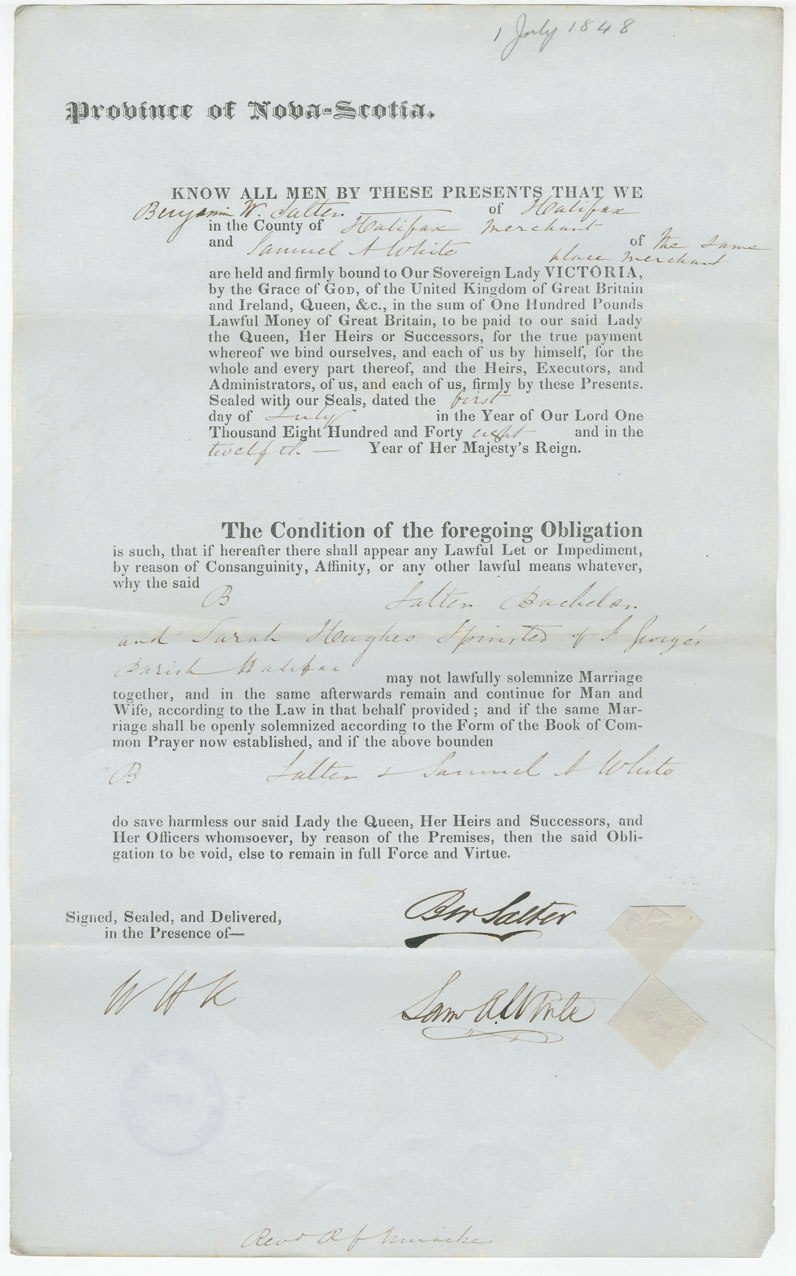 1 July 1848
Province of Nova-Scotia.
KNOW ALL MEN BY THESE PRESENTS THAT WE
Benjamin W. Salter of Halifax
in the County of Halifax Merchant
and Samuel A White of the same
place merchant
are held and firmly bound to Our Sovereign Lady VICTORIA,
by the Grace of GOD, of the United Kingdom of Great Britain
and Ireland, Queen, &c., in the sum of One Hundred Pounds
Lawful Money of Great Britain, to be paid to our said Lady
the Queen, Her Heirs or Successors, for the true payment
whereof we bind ourselves, and each of us by himself, for the
whole and every part thereof, and the Heirs, Executors, and
Administrators, of us, and each of us, firmly by these Presents.
Sealed with our Seals, dated the first
day of July in the Year of Our Lord One
Thousand Eight Hundred and Forty eight and in the
twelfth — Year of Her Majesty's Reign.
The Condition of the foregoing Obligation
is such, that if hereafter there shall appear any Lawful Let or Impediment,
by reason of Consanguinity, Affinity, or any other lawful means whatever,
why the said
B Salter Bachelor
and Sarah Hughes Spinster of St George's
Parish Halifax may not lawfully solemnize Marriage
together, and in the same afterwards remain and continue for Man and
Wife, according to the Law in that behalf provided ; and if the same Mar-
riage shall be openly solemnized according to the Form of the Book of Com-
mon Prayer now established, and if the above bounden
B Salter & Samuel A White
do save harmless our said Lady the Queen, Her Heirs and Successors, and
Her Officers whomsoever, by reason of the Premises, then the said Obli-
gation to be void, else to remain in full Force and Virtue.
Signed, Sealed, and Delivered,
in the Presence of—
Ben Salter
W H K
Sam A. White
Revd R F Uniacke